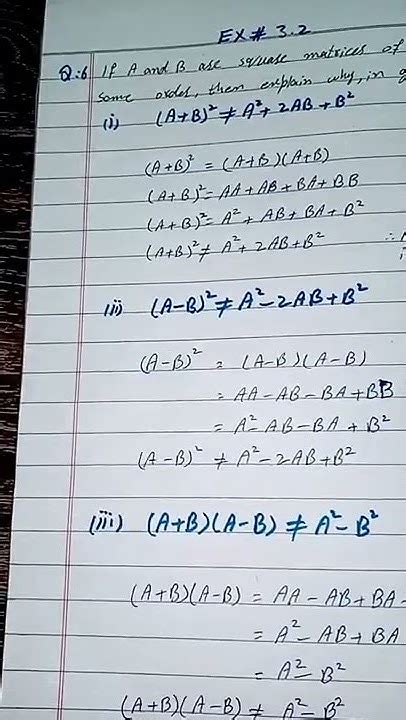 EX# 3.2
Q.6 If A and B are square matrices of
same order, then explain why, in
(i) (A+B)² ≠ A²+2AB+B²
(A+B)² = (A+B)(A+B)
(A+B)² = AA+AB+BA+BB
(A+B)² = A²+AB+BA+B²
(A+B)² ≠ A²+2AB+B²
(ii) (A-B)² ≠ A²-2AB+B²
(A-B)² = (A-B)(A-B)
= AA-AB-BA+BB
= A²-AB-BA+B²
(A-B)² ≠ A²-2AB+B²
(iii) (A+B)(A-B) ≠ A²-B²
(A+B)(A-B) = AA-AB+BA-
= A²-AB+BA
= A²-B²
(A+B)(A-B) ≠ A²-B²